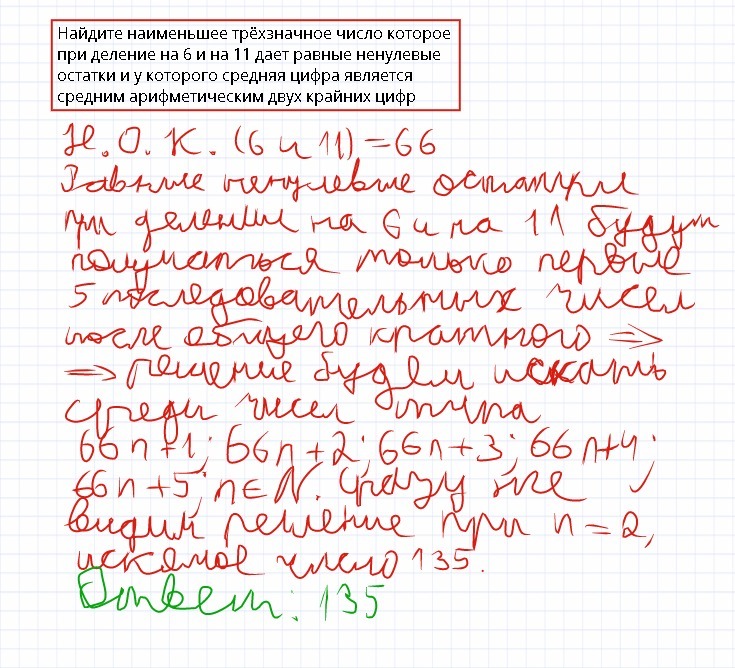 Найдите наименьшее трёхзначное число которое
при деление на 6 и на 11 дает равные ненулевые
остатки и у которого средняя цифра является
средним арифметическим двух крайних цифр
Н.О.К. (6 и 11) = 66
Равные ненулевые остатки
при делении на 6 и на 11 будут
получаться только первые
5 последовательных чисел
после общего кратного ⇒
⇒ решение будем искать
среди чисел типа
66n+1; 66n+2; 66n+3; 66n+4;
66n+5; n∈N. Сразу же
видим решение при n=2,
искомое число 135.
Ответ: 135